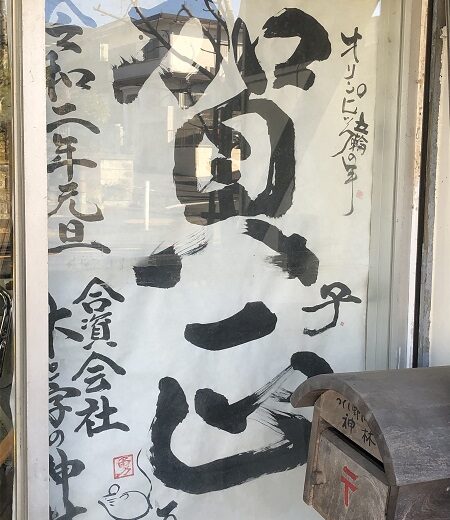 オリンピック五輪の年
賀正
子
令和二年元旦
合資会社
木学の神林
つくし野
神林
〒